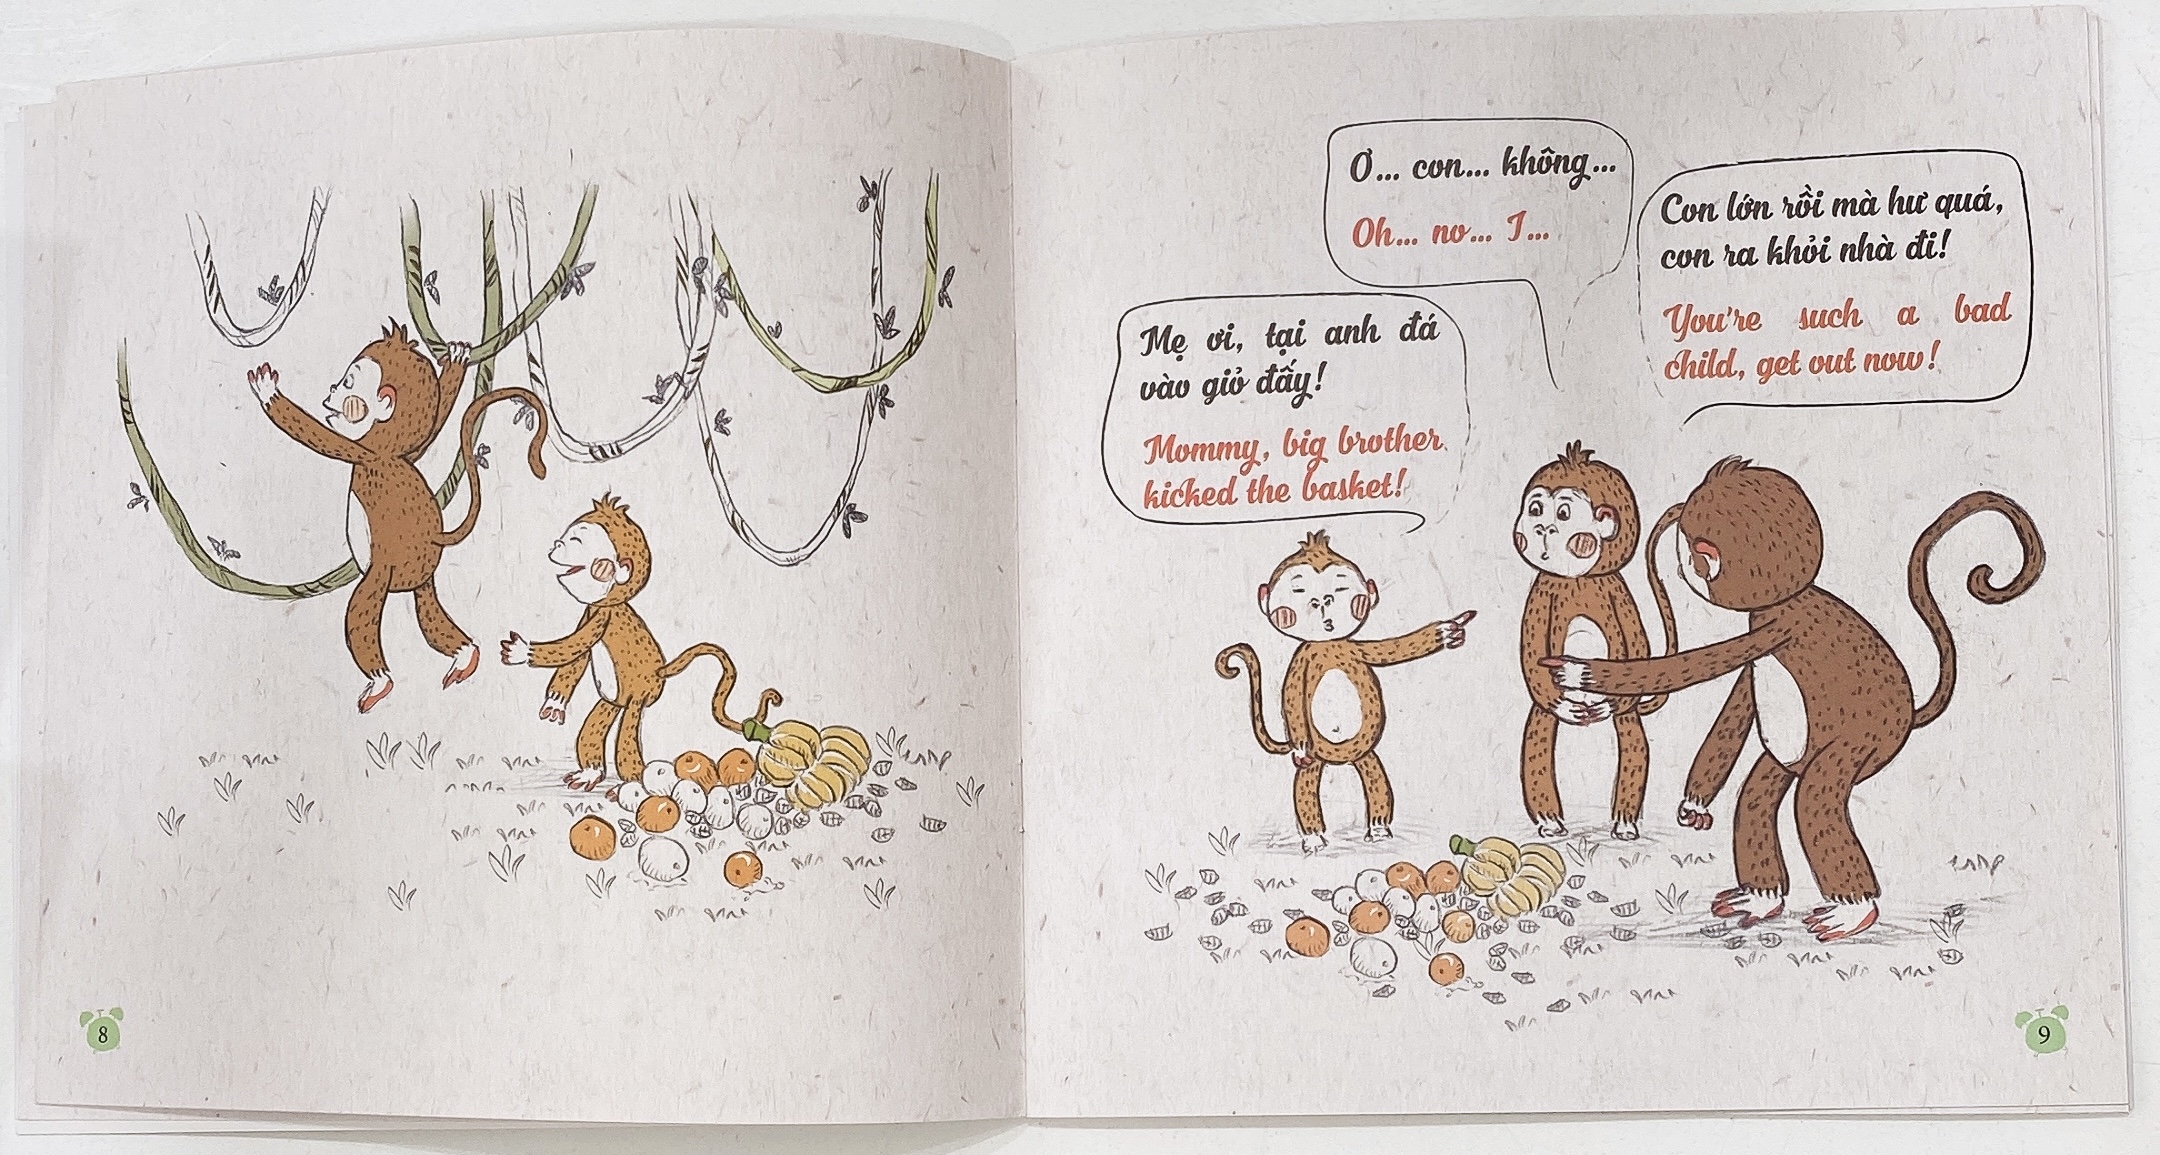 8
Ơ... con... không...
Oh... no... I...
Con lớn rồi mà hư quá,
con ra khỏi nhà đi!
You're such a bad
child, get out now!
Mẹ ơi, tại anh đá
vào giỏ đấy!
Mommy, big brother
kicked the basket!
9